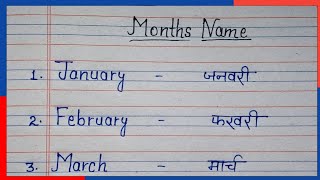 Months Name
1. January - जनवरी
2. February - फरवरी
3. March - मार्च